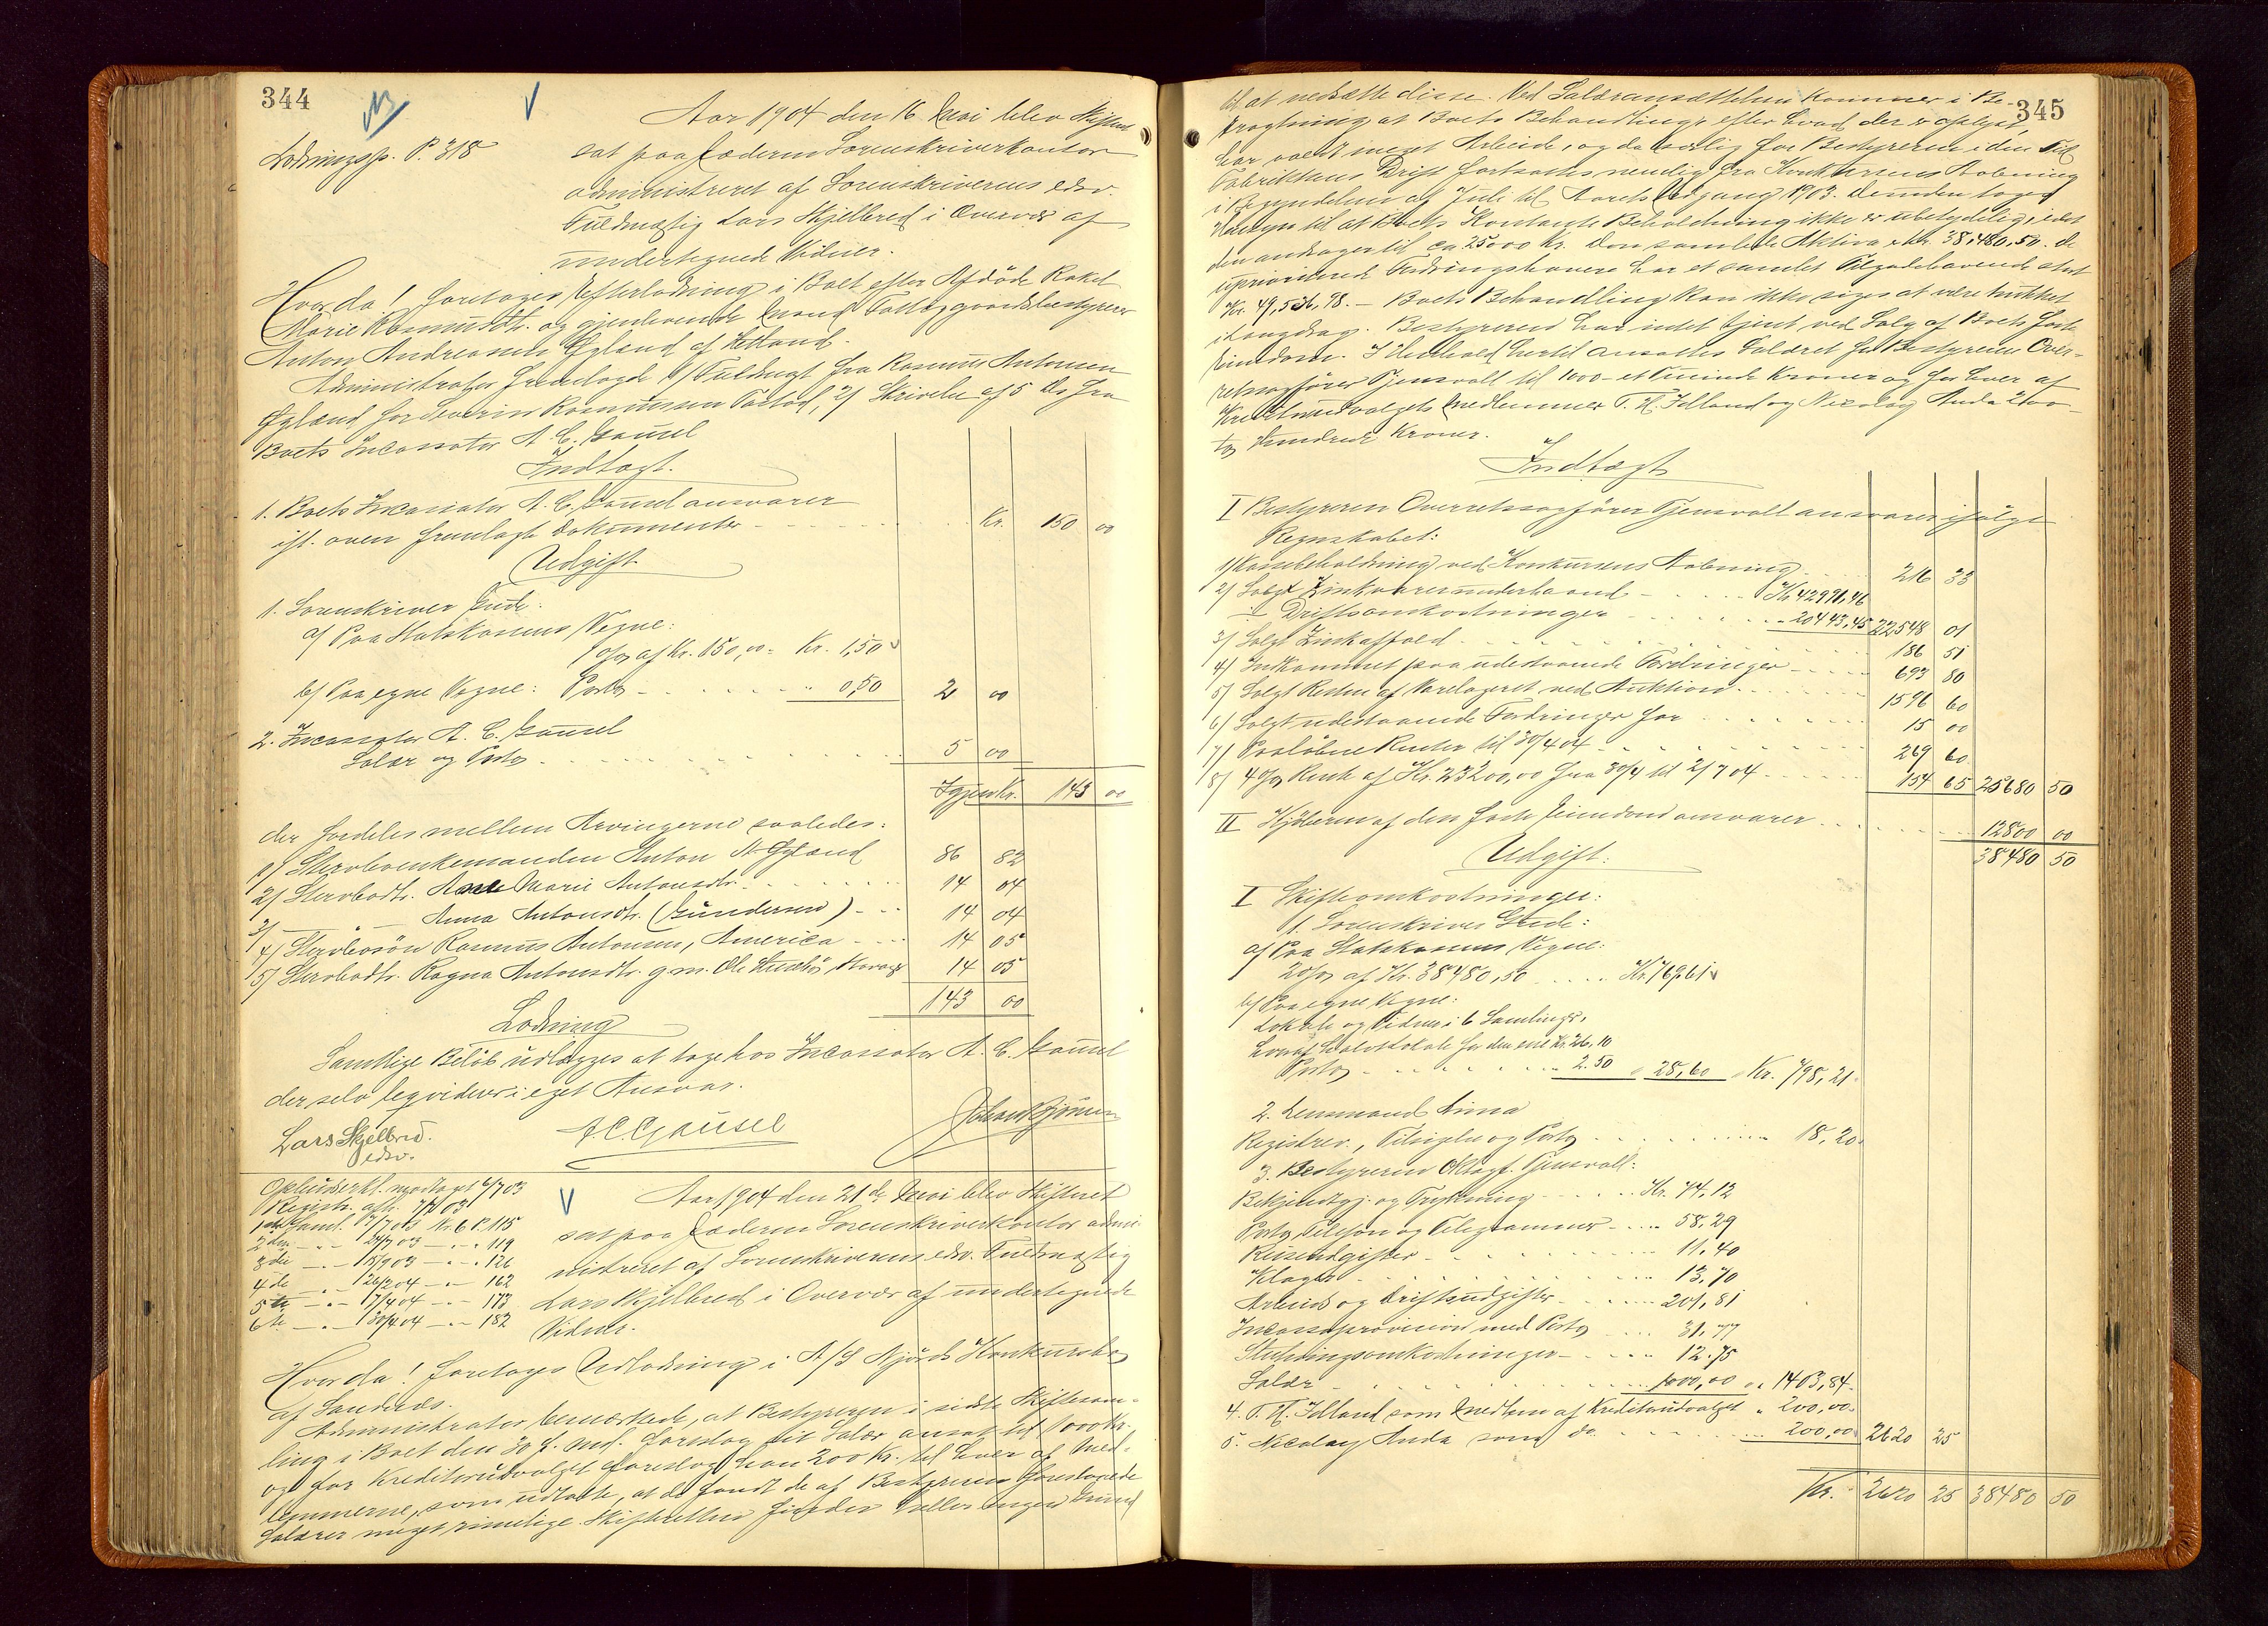 344
Lodningsp. P. 318
Aar 1904 den 16 Mai blev Skifteret
sat paa Jæderens Sorenskriverkontor
administreret af Sorenskriverens edsv.
Fuldmægtig Lars Skjelbred i Overvær af
undertegnede Vidner.
Hvor da! foretoges Efterlodning i Boet efter Afdøde Rakel
Marie Rasmusdtr. og gjenlevende Mand Fattiggaardsbestyrer
Anton Andreasen Øgland af Hetland.
Administrator fremlagde 1/ Fuldmagt fra Rasmus Antonsen
Øgland for Severin Rasmussen Tastad, 2/ Skrivelse af 5 ds fra
Boets Incassator A. C. Gausel
Indtægt.
1. Boets Incassator A. C. Gausel ansvarer
ifl. oven fremlagte Dokumenter - - - Kr. 150 00
Udgift
1. Sorenskriver Gude:
a/ Paa Statskassens Vegne:
1 o/o af Kr. 150,00 = Kr. 1,50
b/ Paa egne Vegne: Porto - - - " 0,50 2 00
2. Incassator A. C. Gausel
Salær og Porto - - - 5 00
Igjen Kr. 143 00
der fordeles mellem Arvingerne saaledes:
1/ Stervboenkemanden Anton A. Øgland 86 82
2/ Stervbodtr. Ane Marie Antonsdtr. - - 14 04
3/ — " — Anna Antonsdtr. (Gundersen) - - 14 04
4/ Stervbosøn Rasmus Antonsen, America - - 14 05
5/ Stervbodtr. Ragna Antonsdtr. g.m. Ole 14 05
143 00
Lodning
Samtlige Beløb udlægges at tage hos Incassator A. C. Gausel
der selv leqviderer i eget Ansvar.
Lars Skjelbred. A. C. Gausel
edsv.
Opbudserkl. modtaget 6/7 03
Registr. afh. 7/7 03
1ste Saml. 17/7 03 Nr. 6 P. 115
2den — " — 24/7 03 — " — 119
3die — " — 15/9 03 — " — 126
4de — " — 26/2 04 — " — 162
5te — " — 17/4 04 — " — 173
6te — " — 30/4 04 — " — 182
Aar 1904 den 21de Mai blev Skifteret
sat paa Jæderens Sorenskriverkontor admi-
nistreret af Sorenskriverens edsv. Fuldmægtig
Lars Skjelbred i Overvær af undertegnede
Vidner.
Hvor da! foretoges Udlodning i A/S Njørds Konkursbo
af Sandnæs.
Administrator bemærkede, at Bestyreren i sidste Skiftesam-
ling i Boet den 30 f. md. foreslog sit Salær ansat til 1000 Kr.
og for Kreditorudvalget foreslog han 200 Kr. til hver af Med-
lemmerne, som udtalte, at de fandt de af Bestyreren foreslaaede
Salærer meget rimelige. Skifteretten finder heller ingen Grund
345
til at nedsætte disse. Ved Salæransættelsen kommer i Be-
tragtning at Boets Behandling, efter hvad der er oplyst,
har voldt meget Arbeide, og da særlig for Bestyreren i den Tid
Fabrikkens Drift fortsattes nemlig fra Konkursens Aabning
i Begyndelsen af Juli til Aarets Udgang 1903. Desuden tages
Hensyn til at Boets Kontante Beholdning ikke er ubetydelig, idet
den andrager til ca 25000 Kr. Den samlede Aktiva er Kr. 38,480,50. de
upriviterede Fordringshavere har et samlet Tilgodehavende stort
Kr. 49,536.98. — Boets Behandling kan ikke siges at være trukket
i Langdrag. Bestyreren har intet tjent ved Salg af Boets faste
Eiendom. I Henhold hertil ansattes Salæret for Bestyreren Over-
retssagfører Tjensvoll til 1000 - et Tusinde Kroner og for hver af
Kreditorudvalgets Medlemmer T. H. Jelland og Nicolay Anda 200 -
to Hundrede Kroner.
Indtægt
I Bestyreren Overretssagfører Tjensvoll ansvarer ifølge
Regnskabet:
1/ Kassebeholdning ved Konkursens Aabning 216 33
2/ Solgt Zinkvarer underhaand - - - Kr 42991,46
÷ Driftsomkostninger - - - " 20443,45 22548 01
3/ Solgt Zinkaffald - - - 186 51
4/ Indkommet paa udestaaende Fordringer - - - 693 80
5/ Solgt Resten af Varelageret ved Auktion - - - 1596 60
6/ Solgt udestaaende Fordringer for - - - 15 00
7/ Paaløbne Renter til 30/4 04 - - - 269 60
8/ 4 o/o Rente af Kr. 23200,00 fra 30/4 til 2/7 04 - - - 154 65 25680 50
II Kjøberen af den faste Eiendom ansvarer - - - 12800 00
38480 50
Udgift.
I Skifteomkostninger:
1. Sorenskriver Gude:
a/ Paa Statskassens Vegne:
2 o/o af Kr. 38480,50 - - - Kr. 769,61
b/ Paa egne Vegne:
Lokale og Vidner i 6 Samlinger,
hvoraf halvt Lokale for den ene Kr. 26,10
Porto - - - " 2.50 " 28,60 Kr. 798,21
2. Lensmand Aima
Registrer., Tilsigelse og Porto - - - 18,20
3. Bestyreren Orsagf. Tjensvoll:
Bekjendtgj. og Trykning - - - Kr. 74,12
Porto, Telefon og Telegrammer - - " 58,29
Reiseudgifter - - - 11,40
Klager - - - 13,70
Arbeids og Driftsudgifter - - - 201,81
Incassoprovision med Porto - - - 31,77
Stevningsomkostninger - - - 12.75
Salær - - - 1000,00 " 1403,84
4. T. H. Jelland som Medlem af Kreditorudvalget " 200,00
5. Nicolay Anda som do - - - 200,00 2620 25
Kr. 2620 25 38480 50